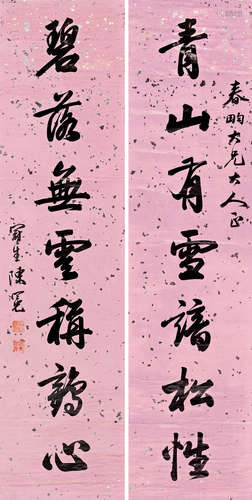 春畇大兄大人正
青山有雪諳松性
碧落無雲稱鶴心
冕生陳冕